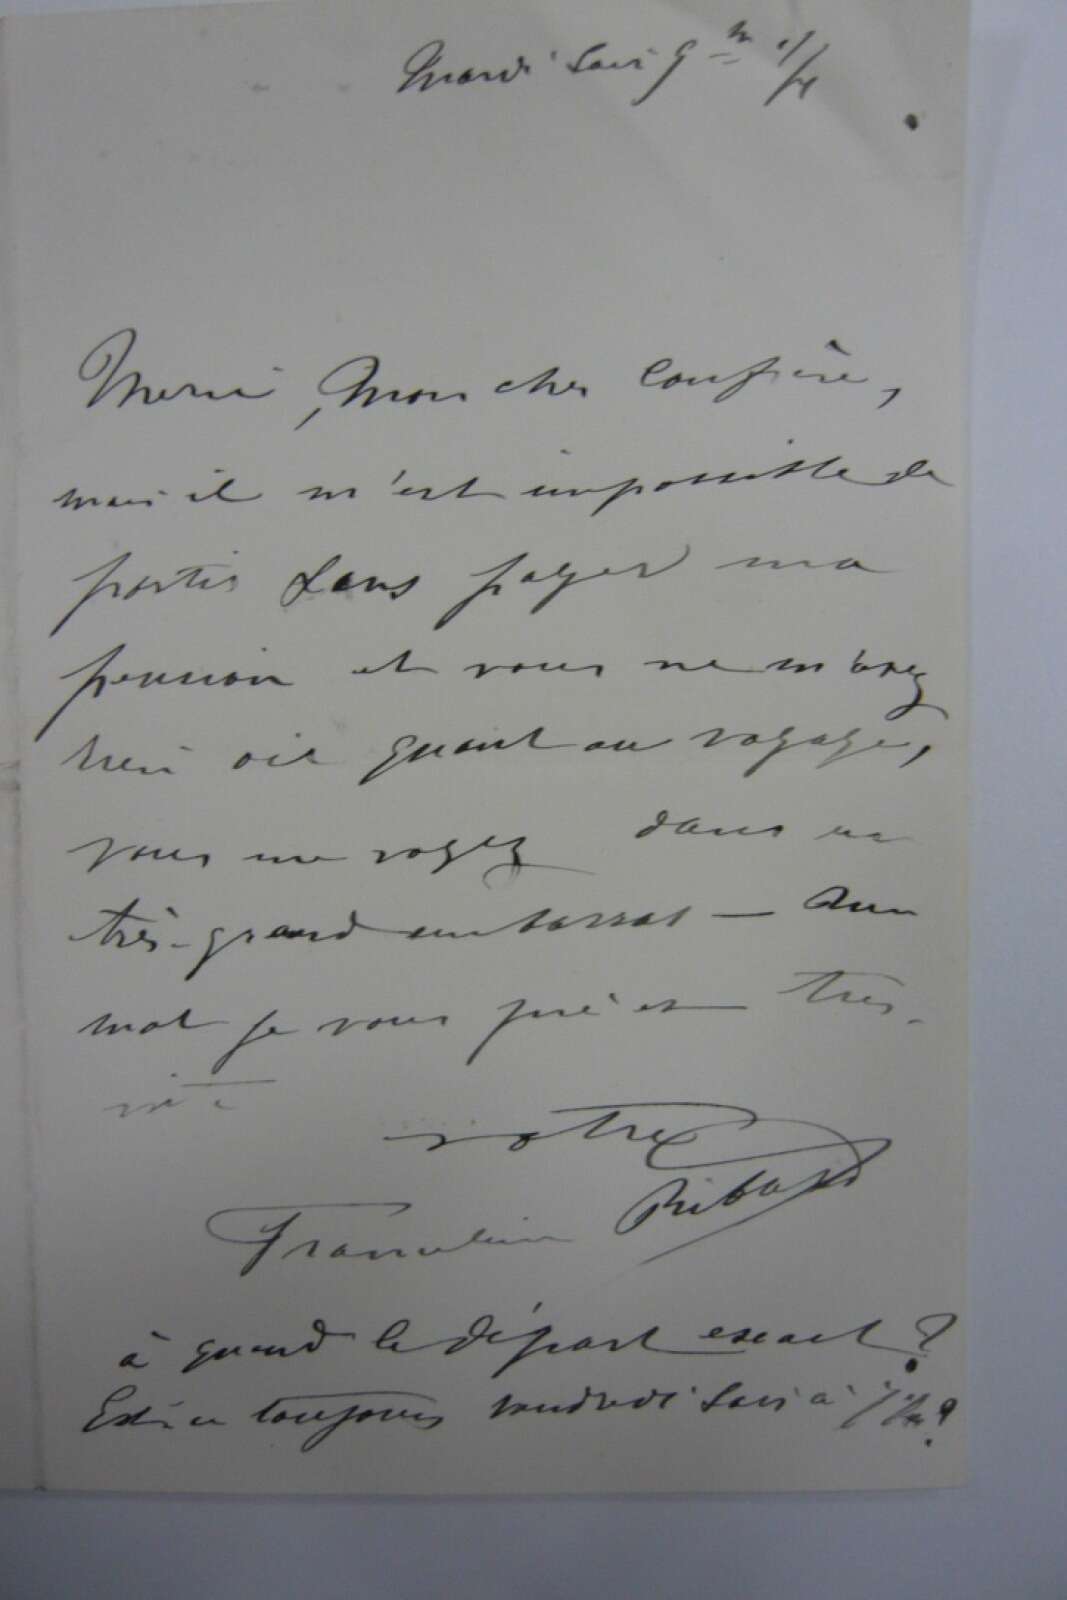 Mardi soir 9 h 1/4
Merci, Mon cher confrère,
mais il m'est impossible de
partir sans payer ma
pension et vous ne m'avez
rien dit quant au voyage,
vous me voyez dans un
très-grand embarras — Un
mot je vous prie et très-
vite
votre
Francelin Ribard
à quand le départ exact?
Est-ce toujours vendredi soir à